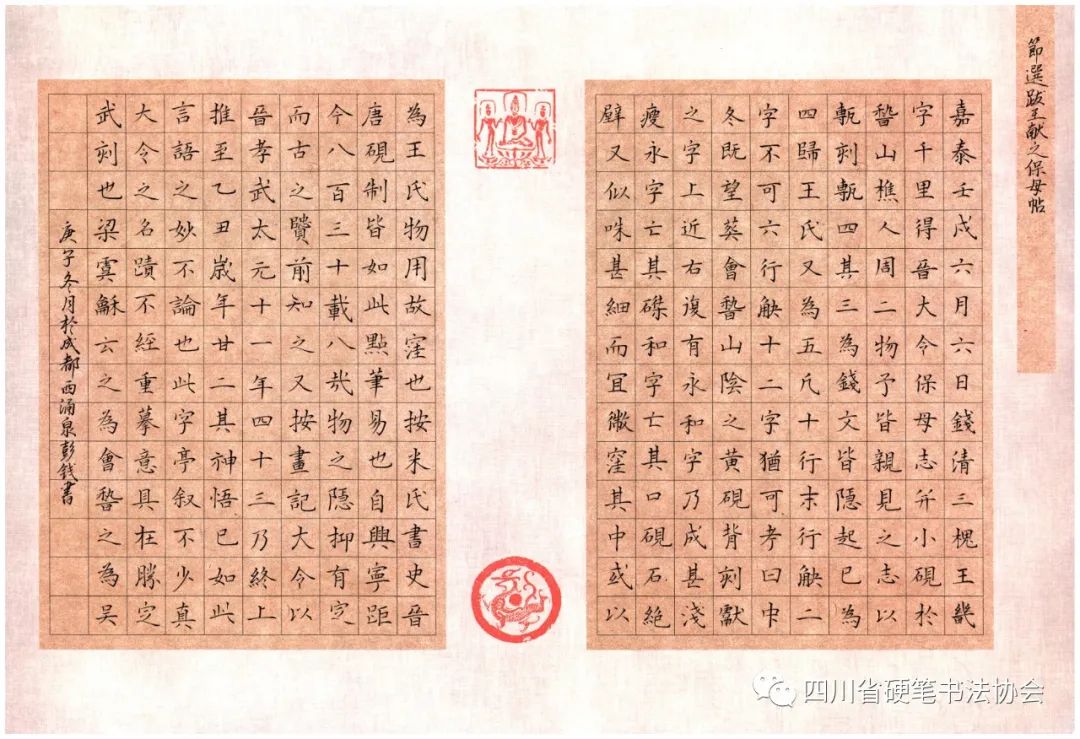 節選跋王献之保母帖
嘉泰壬戌六月六日錢清三槐王畿
字千里得晉大令保母志并小硯於
稽山樵人周二物予皆親見之志以
甎刻甎四其三為錢文皆隱起已為
四歸王氏又為五凡十行末行缺二
字不可六行缺十二字猶可考曰中
冬既望葬會稽山陰之黃硯背刻獻
之字上近右復有永和字乃成甚淺
瘦永字亡其磔和字亡其口硯石絕
壁又似咮甚細而宜微窪其中或以
為王氏物用故窪也按米氏書史晉
唐硯制皆如此點筆易也自興寧距
今八百三十載八哉物之隱抑有定
而古之贒前知之又按畫記大令以
晉孝武太元十一年四十三乃終上
推至乙丑歲年廿二其神悟已如此
言語之妙不論也此字亭叙不少真
大令之名蹟不經重摹意具在勝定
武刻也梁虞龢云之為會稽之為吳
庚子冬月於成都西涌泉彭錢書
四川省硬笔书法协会